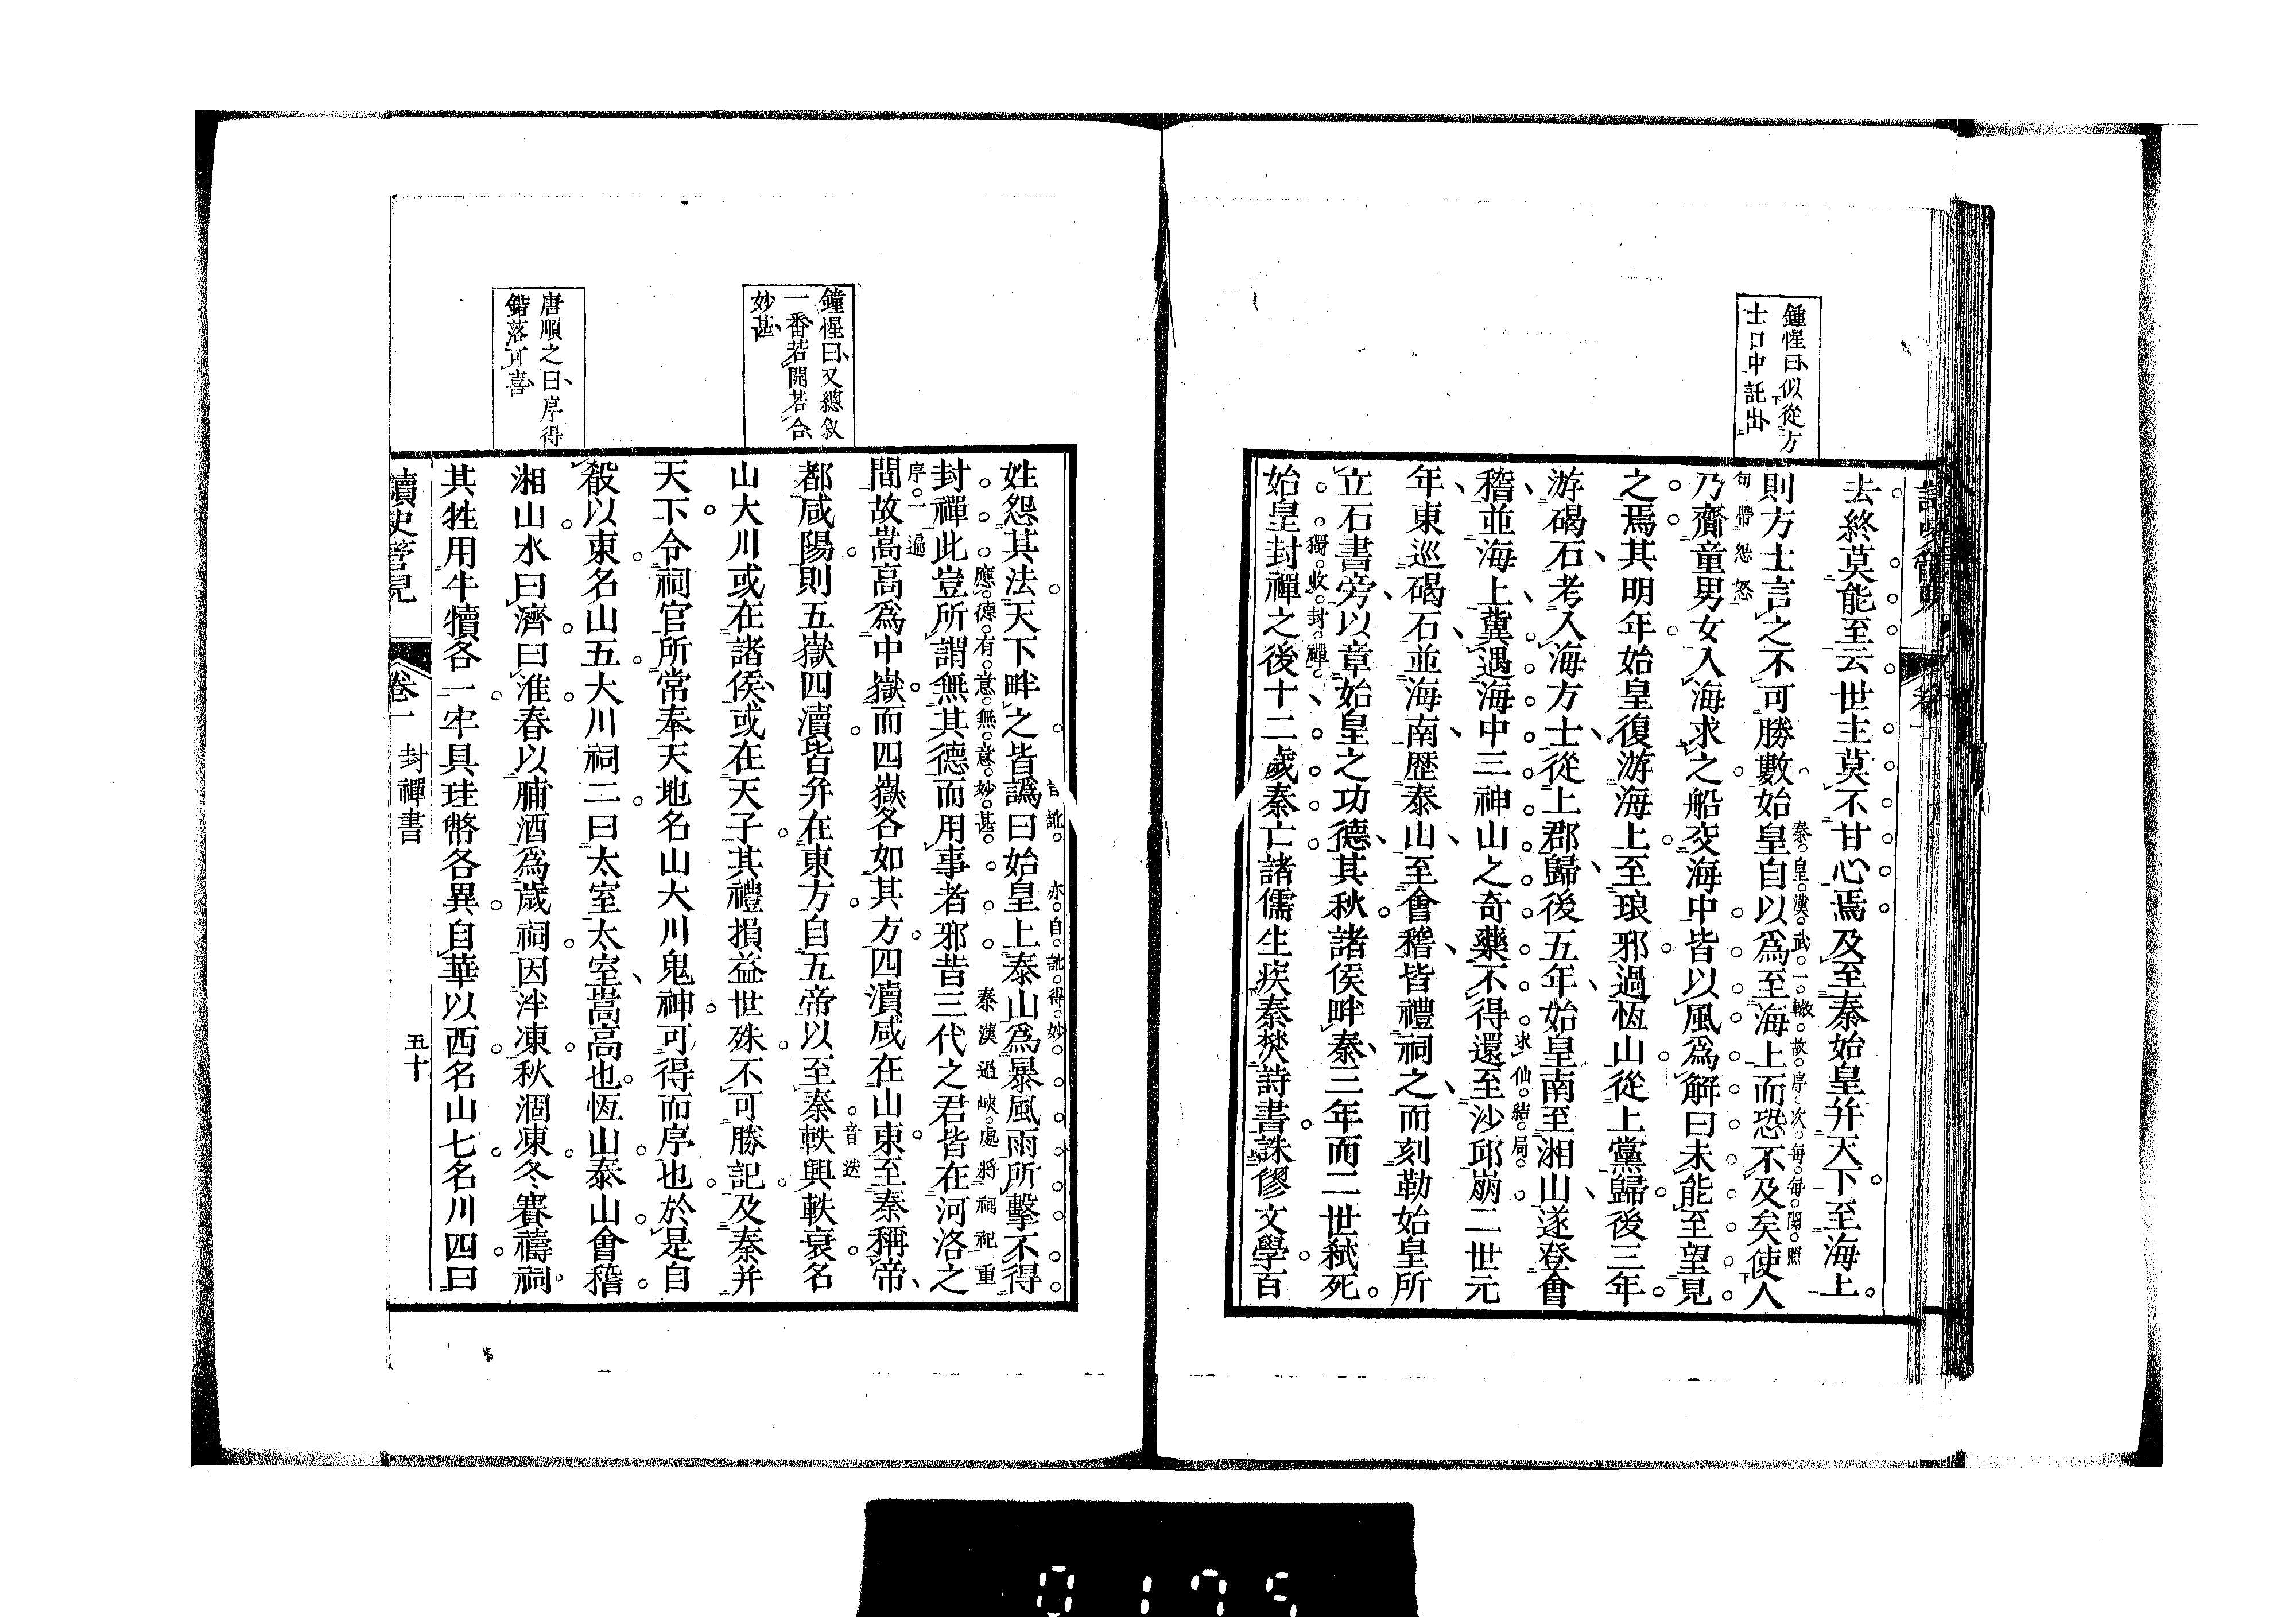 鍾惺曰似從方
士口中託出
去終莫能至云世主莫不甘心焉及至秦始皇并天下至海上
秦皇漢武一轍故序次每每関照
則方士言之不可勝數始皇自以爲至海上而恐不及矣使人
句帶怨怒
乃齎童男女入海求之船交海中皆以風爲解曰未能至望見
之焉其明年始皇復游海上至琅邪過恆山從上黨歸後三年
游碣石考入海方士從上郡歸後五年始皇南至湘山遂登會
求仙結局
稽並海上冀遇海中三神山之奇藥不得還至沙邱崩二世元
年東巡碣石並海南歷泰山至會稽皆禮祠之而刻勒始皇所
立石書旁以章始皇之功德其秋諸侯畔秦三年而二世弑死
獨收封禪
始皇封禪之後十二歲秦亡諸儒生疾秦焚詩書誅僇文學百
鐘惺曰又總叙
一番若開若合
妙甚
唐順之曰序得
錯落可喜
訛亦自訛得妙
姓怨其法天下畔之皆譌曰始皇上泰山爲暴風雨所擊不得
應德有意無意妙甚
秦漢過峽處將祠祀重
封禪此豈所謂無其德而用事者邪昔三代之君皆在河洛之
序一遍
間故嵩高爲中嶽而四嶽各如其方四瀆咸在山東至秦稱帝
音迭
都咸陽則五嶽四瀆皆并在東方自五帝以至秦軼興軼衰名
山大川或在諸侯或在天子其禮損益世殊不可勝記及秦并
天下令祠官所常奉天地名山大川鬼神可得而序也於是自
殽以東名山五大川祠二曰太室太室嵩高也恆山泰山會稽
湘山水曰濟曰淮春以脯酒爲歲祠因泮凍秋涸凍冬賽禱祠
其牲用牛犢各一牢具珪幣各異自華以西名山七名川四曰
讀史管見
卷一
封禪書
五十
0175